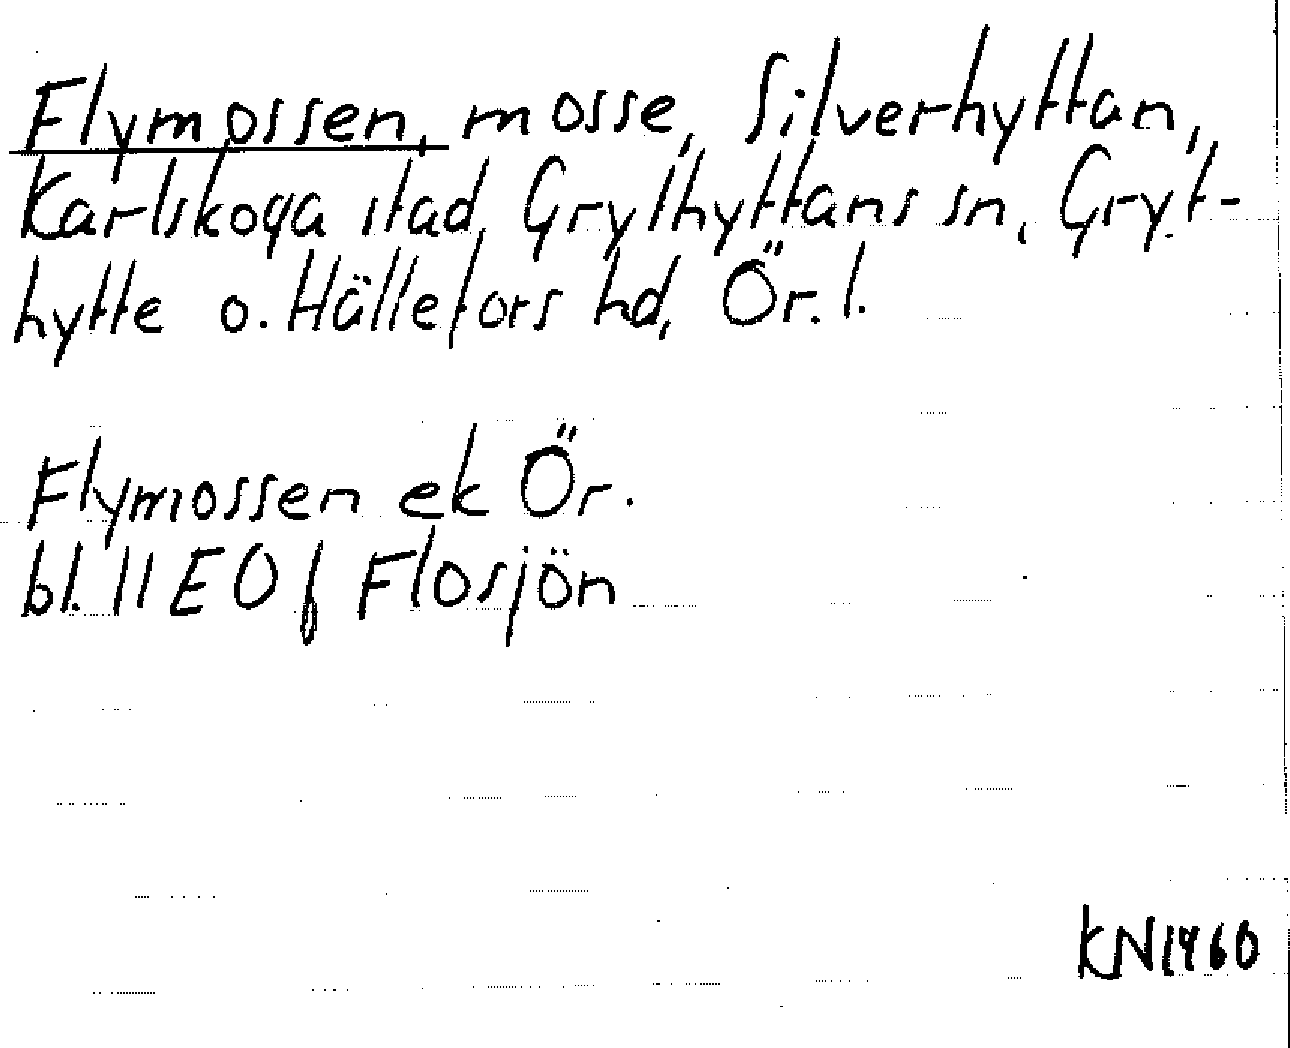 Flymossen, mosse, Silverhyttan,
Karlskoga stad, Grythyttans sn, Gryt-
hytte o. Hällefors hd, Ör. l.
Flymossen ek Ör.
bl. 11 E 0 f Flosjön
KN 1960